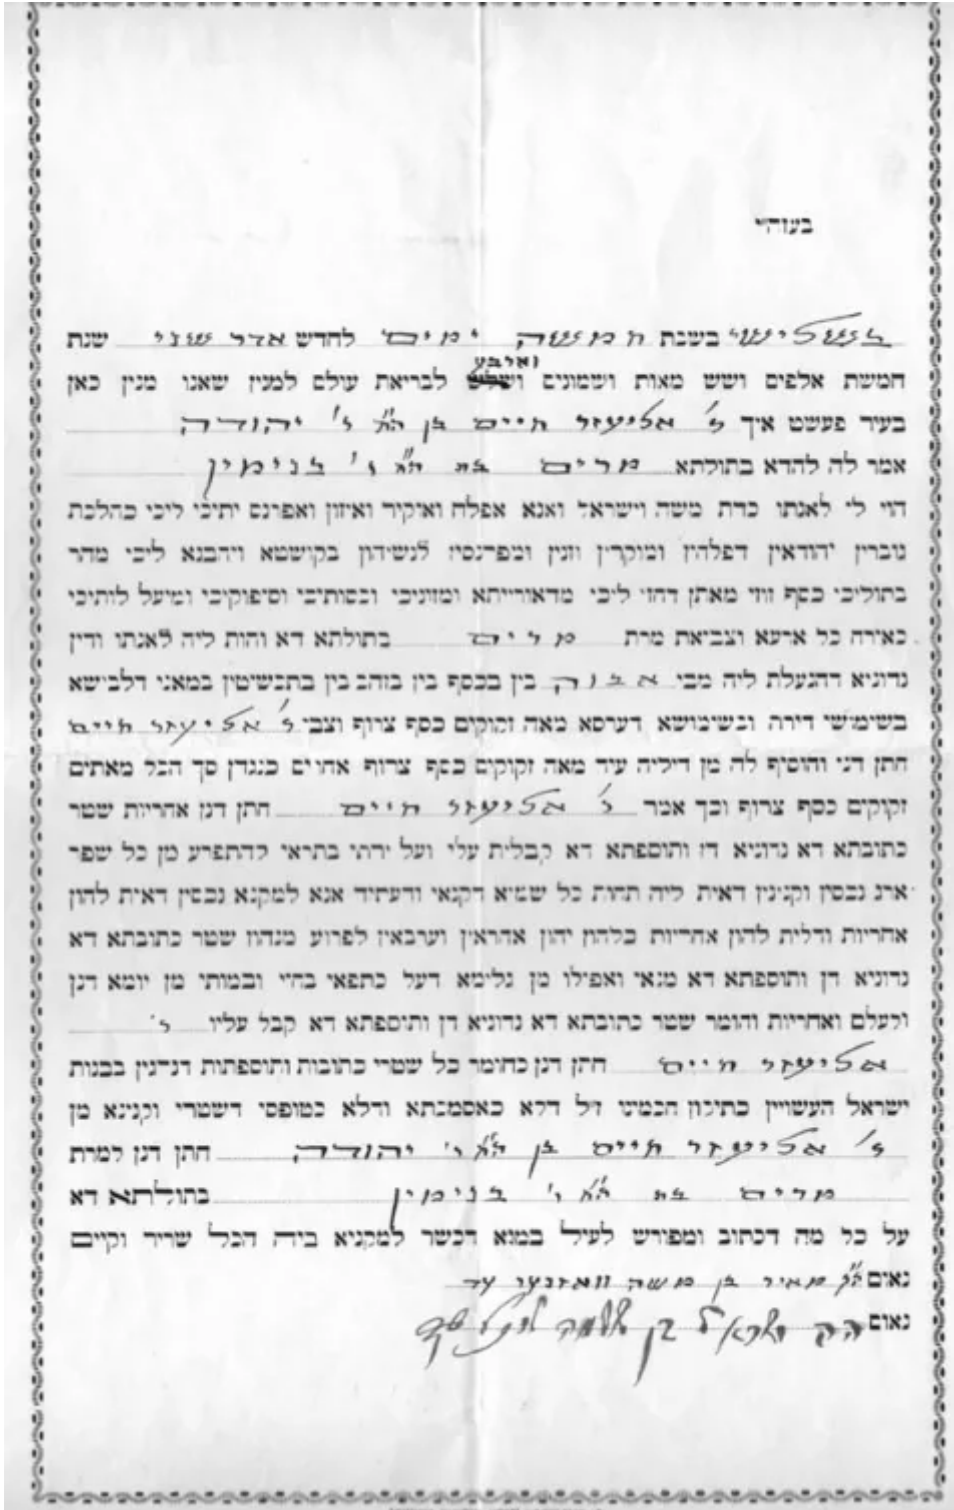 בעזה״י
בשלישי בשבת חמשה ימים לחדש אדר שני שנת
וארבע
חמשת אלפים ושש מאות ושמונים ושלש לבריאת עולם למנין שאנו מנין כאן
בעיר פעשט איך ר' אליעזר חיים בן הר״ ר' יהודה
אמר לה להדא בתולתא מרים בת הר״ ר' בנימין
הוי לי לאנתו כדת משה וישראל ואנא אפלח ואוקיר ואיזון ואפרנס יתיכי ליכי כהלכת
גוברין יהודאין דפלחין ומוקרין וזנין ומפרנסין לנשיהון בקושטא ויהבנא ליכי מהר
בתוליכי כסף זוזי מאתן דחזי ליכי מדאורייתא ומזוניכי וכסותיכי וסיפוקיכי ומיעל לותיכי
כאורח כל ארעא וצביאת מרת מרים בתולתא דא והות ליה לאנתו ודין
נדוניא דהנעלת ליה מבי אבוה בין בכסף בין בזהב בין בתכשיטין במאני דלבושא
בשימושי דירה ובשימושא דערסא מאה זקוקים כסף צרוף וצבי ר' אליעזר חיים
חתן דנן והוסיף לה מן דיליה עוד מאה זקוקים כסף צרוף אחרים כנגדן סך הכל מאתים
זקוקים כסף צרוף וכך אמר ר' אליעזר חיים חתן דנן אחריות שטר
כתובתא דא נדוניא דן ותוספתא דא קבלית עלי ועל ירתי בתראי להתפרע מן כל שפר
ארג נכסין וקנינין דאית ליה תחות כל שמיא דקנאי ודעתיד אנא למקנא נכסין דאית להון
אחריות ודלית להון אחריות כלהון יהון אחראין וערבאין לפרוע מנהון שטר כתובתא דא
נדוניא דן ותוספתא דא מנאי ואפילו מן גלימא דעל כתפאי בחיי ובמותי מן יומא דנן
ולעלם ואחריות וחומר שטר כתובתא דא נדוניא דן ותוספתא דא קבל עליו ר'
אליעזר חיים חתן דנן כחומר כל שטרי כתובות ותוספתות דנהגין בבנות
ישראל העשויין כתיקון חכמינו ז״ל דלא כאסמכתא ודלא כטופסי דשטרי וקנינא מן
ר' אליעזר חיים בן הר״ ר' יהודה חתן דנן למרת
מרים בת הר״ ר' בנימין בתולתא דא
על כל מה דכתוב ומפורש לעיל במנא דכשר למקניא ביה הכל שריר וקיים
נאום הק׳ מאיר בן משה וואזנער עד
נאום הק׳ ישראל בן שלמה עד